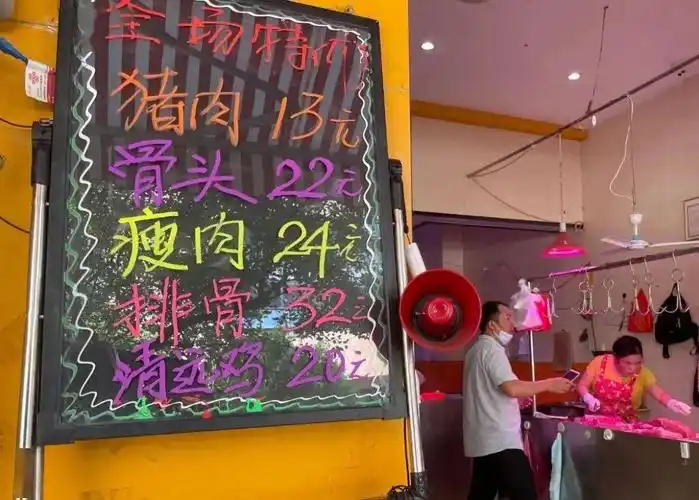 全场特价
猪肉 13元
骨头 22元
瘦肉 24元
排骨 32元
清远鸡 20元